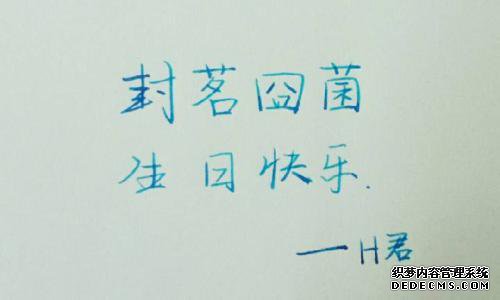 封茗囧菌
生日快乐.
——H君
织梦内容管理系统
DEDECMS.COM